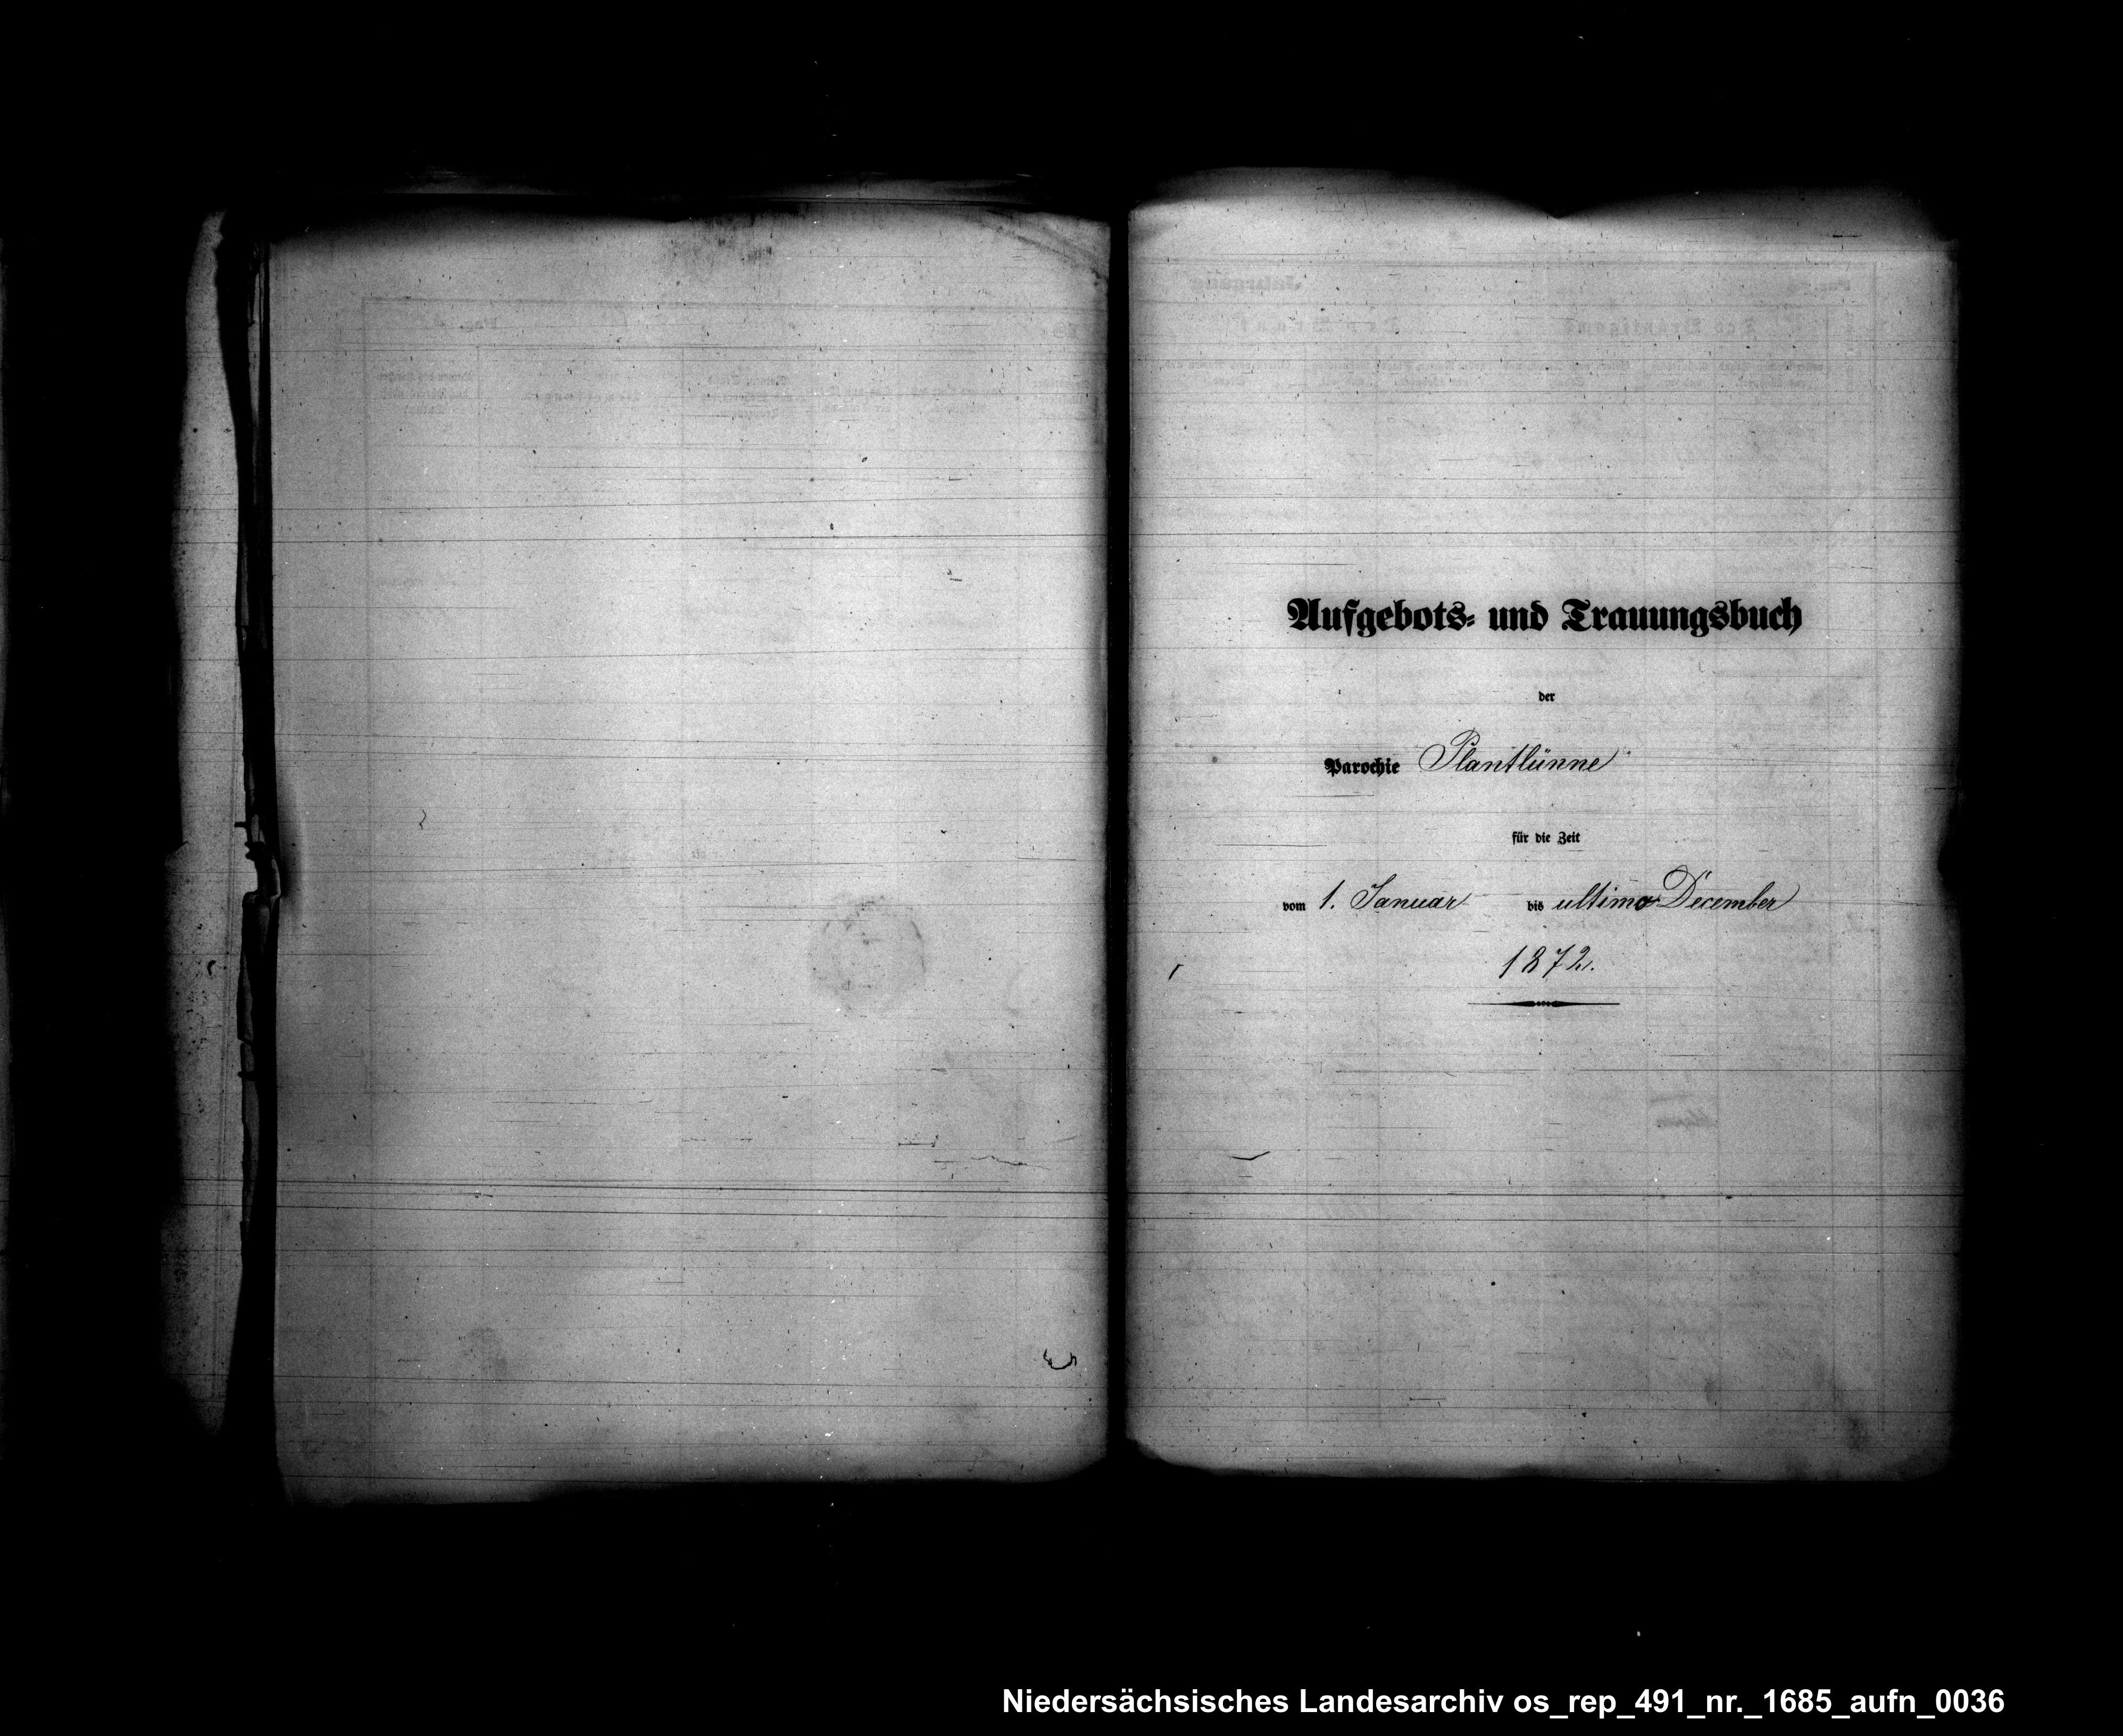 Aufgebots- und Trauungsbuch
der
Parochie Plantlünne
für die Zeit
vom 1. Januar bis ultimo December
1872.
Niedersächsisches Landesarchiv os_rep_491_nr._1685_aufn_0036